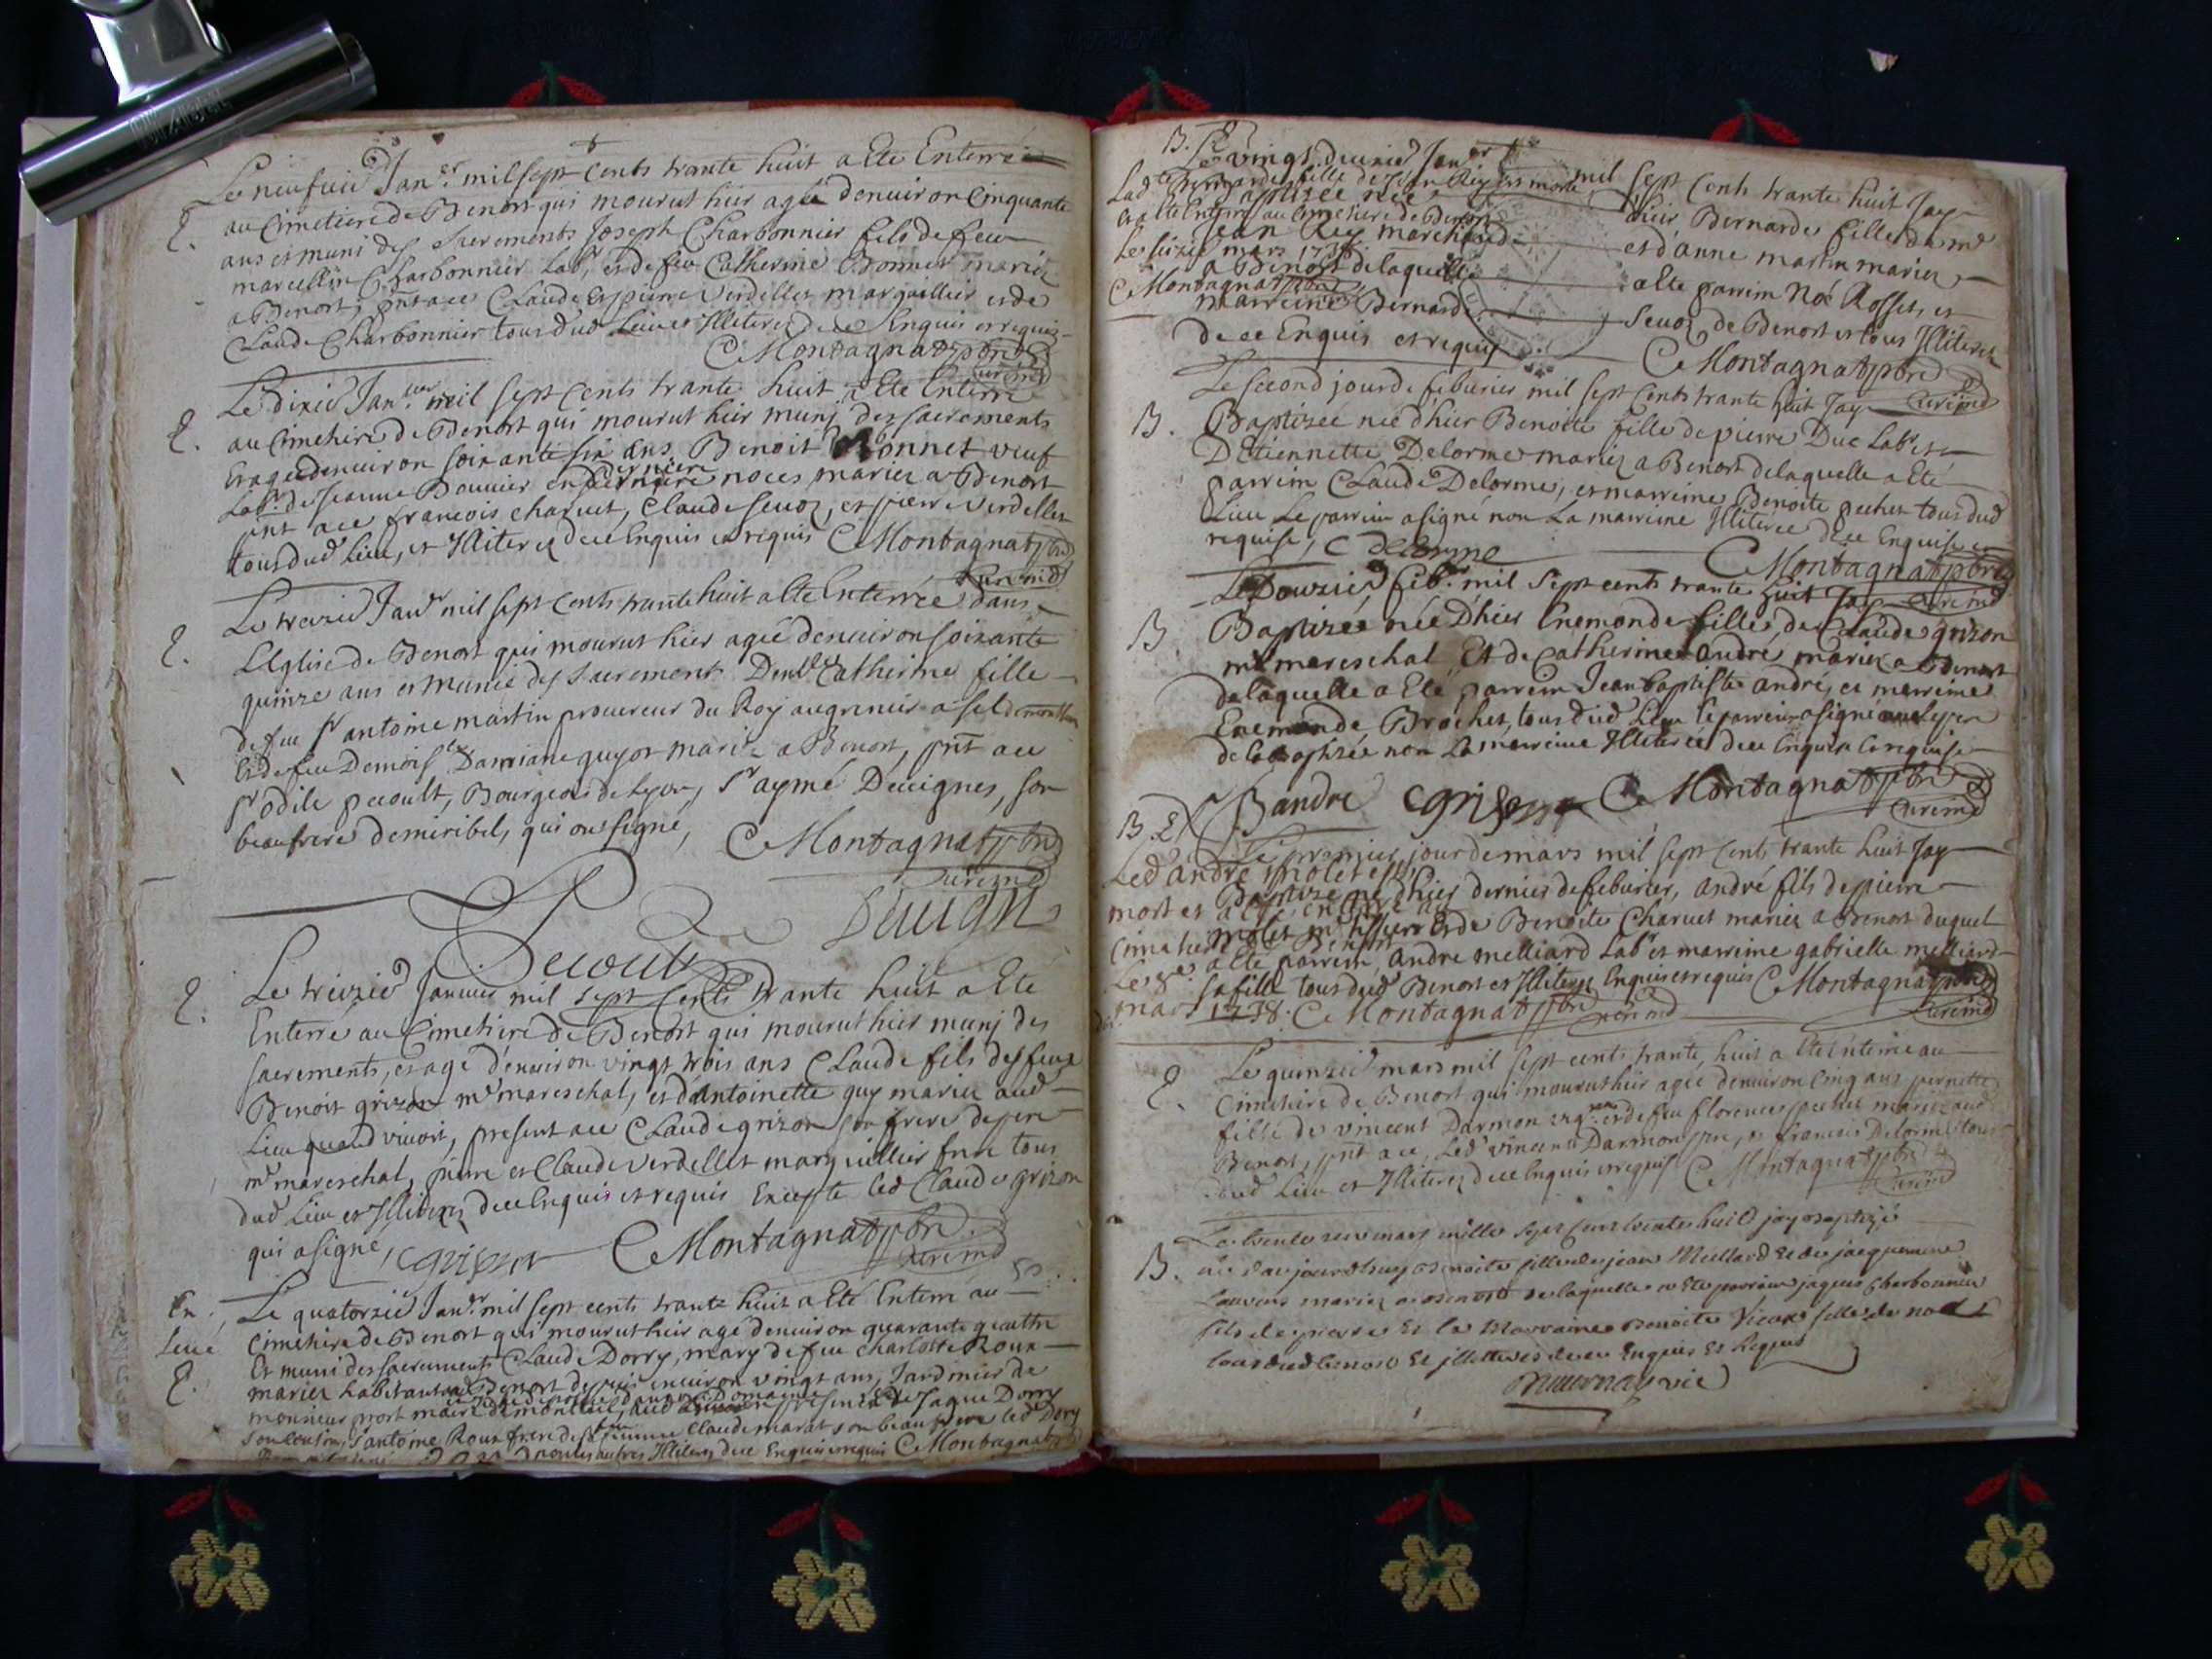 Le neufvie Janer mil sept Cents trante huit a Ete Enterré
E. au Cimetiere de Benost qui mourut hier agée denuiron Cinquante
ans et muni des Sacrements Joseph Charbonnier fils de feu
marcellin Charbonnier Labr, et de feu Catherine Bonnet mariez
a Benost, pnt a ce Claude et pierre Verdellet marguillier et de
Claude Charbonnier tous dud Lieu et Illiterez de ce Enquis et requis
C Montagnat ptre
Curé md
Le dixie Janer mil sept Cents trante huit a Ete Enterré
E. au Cimetiere de Benost qui mourut hier munj des sacrements
Et age denuiron soixante six ans Benoit Bonnet veuf
Labr de Jeanne Bouuier en derniere noces mariez a Benost
pnt a ce francois charuet, Claude seuoz, et pierre Verdellet
tous dud Lieu, et Illiterez de ce Enquis et requis C Montagnat ptre
Curé md
Le treizie Janr mil sept Cents trante huit a Ete Enterrée dans
E. L'Eglise de Benost qui mourut hier agée denuiron soixante
quinze ans et munie des sacrement Demlle Catherine fille
de feu Sr antoine martin procureur du Roy au grenier a sel de
Et de feu Demoislle guyot mariez a Benost, pnt a ce
Sr odile pecoult, Bourgeois de Lyon, Sr aymé Deuignes, son
beaufrere de miribel, qui ont signé, C Montagnat ptre
Curé md
Pecoult Deuign
E. Le treizie Januier mil sept Cents trante huit a Eté
Enterré au Cimetiere de Benost qui mourut hier munj des
sacrements, et agé d'enuiron vingt trois ans Claude fils des feux
Benoit grizon me mareschal, et d'antoinette guy mariez aud
Lieu quand viuoit, present a ce Claude grizon son frere de pere
me mareschal, pierre et Claude Verdellet marguillier frere tous
dud Lieu et Illiterez de ce Enquis et requis Excepte led Claude grizon
qui a signé, C grison C Montagnat ptre
Curé md
En. Le quatorzie Janr mil sept cents trante huit a Eté Enterré au
Leué Cimetiere de Benost qui mourut hier agé denuiron quarante quattre
E. Et muni des sacrements Claude Dorry, mary de feu charlotte Roux
mariez habitant a Benost depuis enuiron vingt ans, Jardinier de
monsieur mort maire de montluel, aud Domaine presence de Jaque Dorry
son cousin, antoine Roux frere de sa feu femme Claude marat son beau pere led Dorry
non les autres Illiterez de ce Enquis et requis C Montagnat
B. Le vingt deuxie Janer mil sept Cents trante huit Jay
Ladte Bernarde fille de Jean Rey est morte
Baptisee née d'hier, Bernarde fille du me
et a ete Enterré au Cimetiere de Benost
Jean Rey marchand et d'anne martin mariez
Le seizie mars 1738
a Benost de laquelle a Ete parrin Noé Rosset, et
C Montagnat ptre
marreine Bernarde Seuoz, de Benost et tous Illiterez
de ce Enquis et requis C Montagnat ptre
Curé md
Le second jour de feburier mil sept Cents trante huit Jay
B. Baptizee née d'hier Benoite fille de pierre Duc Labr et
D'Etiennette Delorme mariez a Benost de laquelle a Eté
parrin Claude Delorme, et marreine Benoite pechet tous dud
Lieu Le parrin a signé non La marreine Illiteree de ce Enquise et
requise, C delorme C Montagnat ptre
Curé md
Le Douzie febr. mil sept cents trante huit Jay
B Baptizée née D'hier Enemonde fille de Claude grizon
me mareschal Et de Catherine andré mariez a Benost
de laquelle a Eté parrein Jean baptiste andré, et marreine
Enemonde Brochet, tous dud Lieu le parrein a signé auec le pere
de la baptisée non La marreine Illiterée de ce Enquise et requise
J B andré C grison C Montagnat ptre
Curé md
B. E. Le premier jour de mars mil sept Cents trante huit Jay
Led andré molet est
Baptizé né d'hier dernier de feburier, andré fils de pierre
mort et a ete enterré au
molet me tissier et de Benoite Charuet mariez a Benost duquel
Cimetiere de Benost
a Ete parrein andre melliard Labr et marreine gabrielle melliard
Le 8e
sa fille tous dud Benost et Illiterez Enquis et requis C Montagnat ptre
Curé md
mars 1738. C Montagnat ptre
Curé md
Le quinzie mars mil sept cents trante huit a Ete Enterrée au
E. Cimetiere de Benost qui mourut hier agée denuiron Cinq ans pernette
fille de vincent Darmon et de feu florence pechet mariez aud
Benost, pnt a ce, Led vincent Darmon pere, et francois Delorme tous
dud Lieu et Illiterez de ce Enquis et requis C Montagnat ptre
Curé md
Le trente mars mille sept cent trente huit jay baptizé
B. née daujourdhuy benoite fille de jean Meillard et de jacquemine
mariez a benost de laquelle a Ete parrain jaques Charbonnier
fils de pierre Et la Marraine benoite fille de
tous dud benost Et illetteres de ce Enquis Et Requis
vic